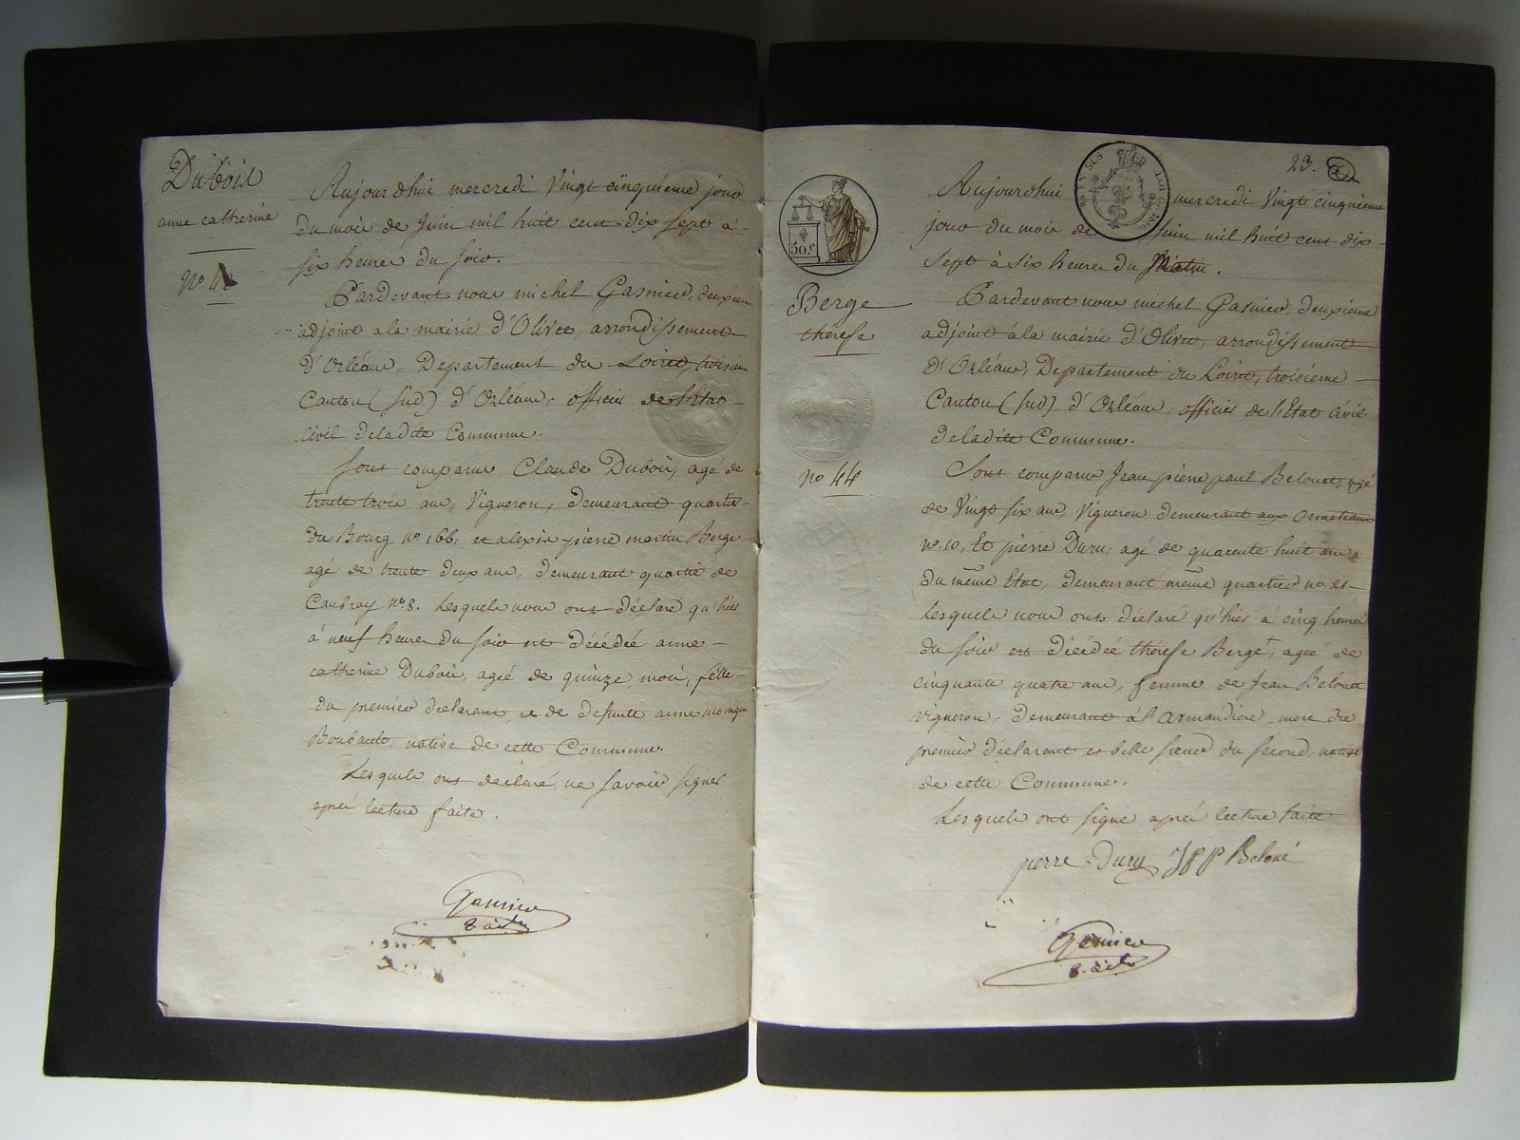 Dubois
anne catherine
No 4
Aujourdhui mercredi Vingt cinquieme jour
du mois de Juin mil huit cent dix sept à
six heures du soir.
Pardevant nous michel Gasnier, deuxieme
adjoint a la mairie d'Olivet, arrondissement
d'Orléans, Departement du Loiret, troisieme
Canton (sud) d'Orléans, officier de l'Etat
Civil de ladite Commune.
Sont comparus Claude Dubois, agé de
trente trois ans, Vigneron, demeurant quartier
du Bourg no 166, et alexis pierre martin Berge
agé de trente deux ans, demeurant quartier de
Caubray No 8. Lesquels nous ont déclaré qu'hier
à neuf heures du soir est décédée anne
catherine Dubois, agée de quinze mois, fille
du premier déclarant, et de defunte anne
Boubault, native de cette Commune.
Lesquels ont déclaré ne savoir signer
après lecture faite.
Gasnier
23.
50c
Berge
thérèse
no 44
Aujourdhui mercredi Vingt cinquieme
jour du mois de Juin mil huit cent dix
sept à six heures du Matin.
Pardevant nous michel Gasnier, deuxieme
adjoint à la mairie d'Olivet, arrondissement
d'Orléans, Departement du Loiret, troisieme
Canton (sud) d'Orléans, officier de l'Etat Civil
de ladite Commune.
Sont comparus Jean pierre paul Belouet, agé
de Vingt six ans, Vigneron demeurant aux Ormeteaux
no. 10, Et pierre Duru, agé de quarente huit ans
du même Etat, demeurant même quartier no.
Lesquels nous ont déclaré qu'hier à cinq heures
du soir est décédée thérèse Berge, agée de
cinquante quatre ans, femme de Jean Belouet
vigneron, demeurant à l'armandiere, mere du
premier déclarant et belle soeur du second, native
de cette Commune.
Lesquels ont signé après lecture faite
pierre Duru JPP Beloué
Gasnier